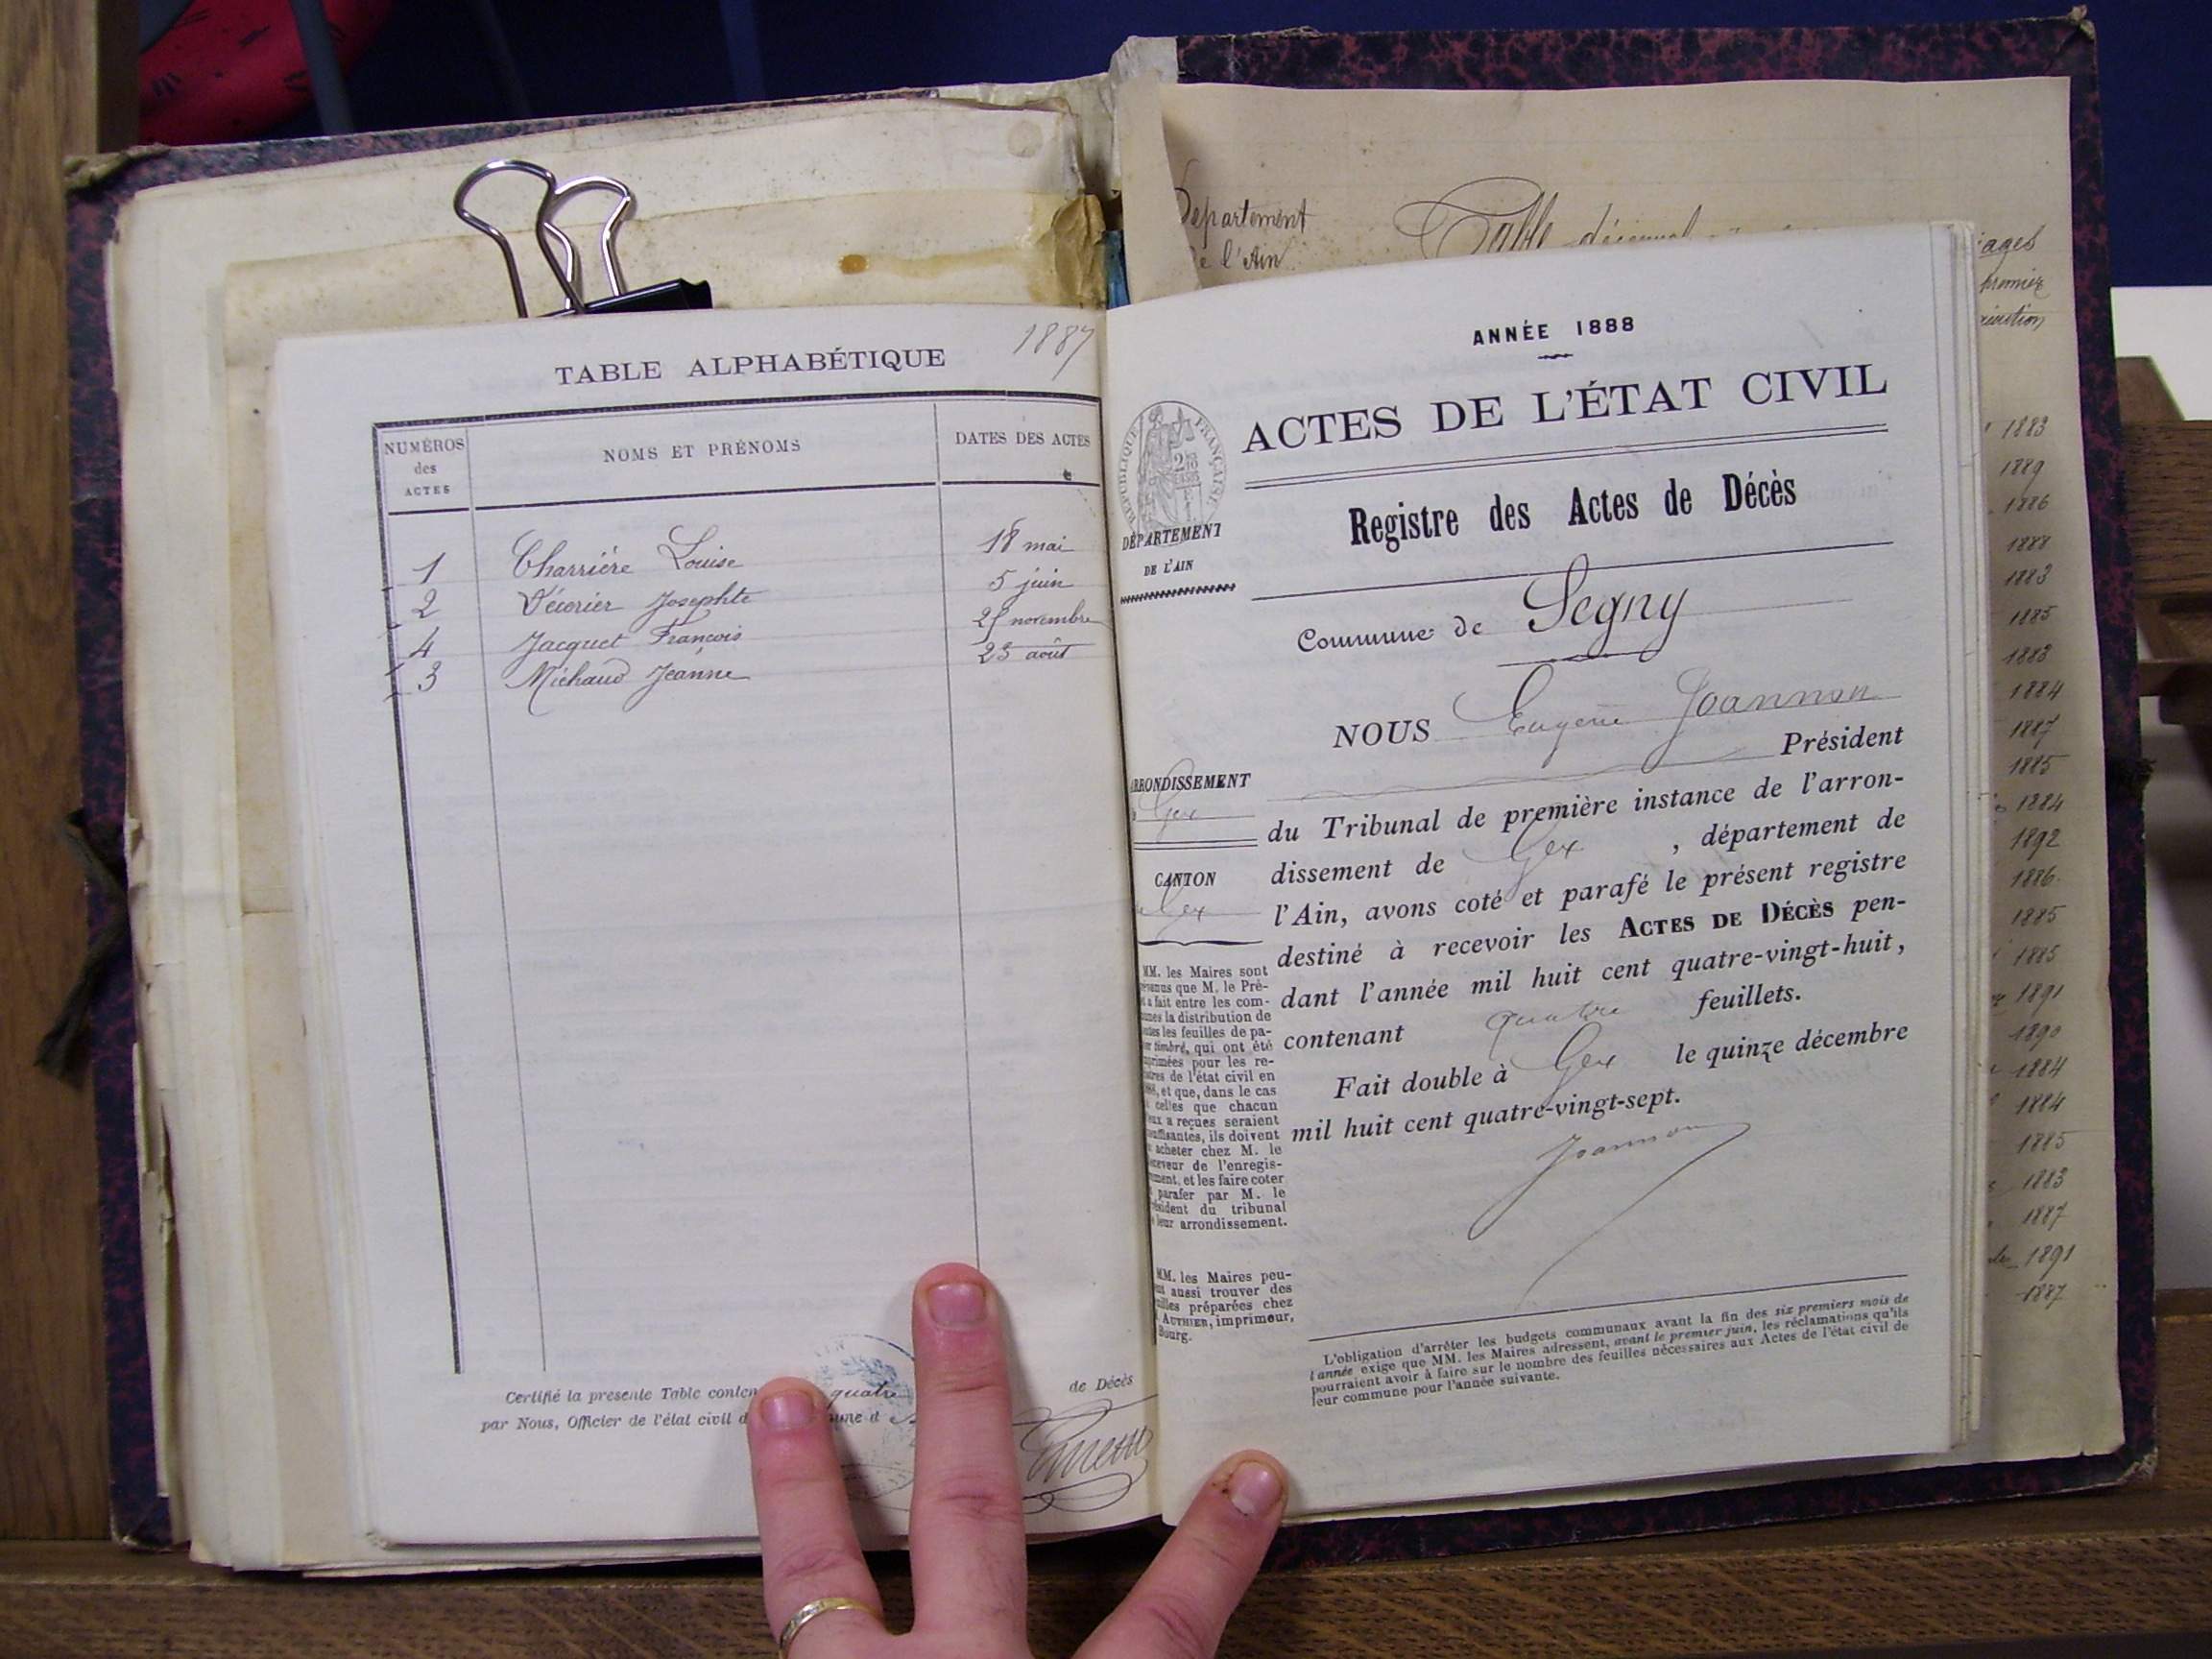 1887
TABLE ALPHABÉTIQUE
NUMÉROS
des
ACTES
NOMS ET PRÉNOMS
DATES DES ACTES
1 Charrière Louise 18 mai
2 Décrier Josephte 5 juin
4 Jacquet François novembre
3 Michaud Jeanne 23 août
Certifié la présente Table quatre de Décès
par Nous, Officier de l'état civil
Département
de l'Ain
Table
iages
premier
1883
1889
1886
1888
1883
1885
1883
1884
1887
1885
1884
1892
1886
1885
1885
1891
1890
1884
1884
1885
1883
1887
1891
1887
ANNÉE 1888
ACTES DE L'ÉTAT CIVIL
RÉPUBLIQUE FRANÇAISE
DÉPARTEMENT
DE L'AIN
Registre des Actes de Décès
Commune de Segny
NOUS Eugène Joannon
Président
du Tribunal de première instance de l'arron-
dissement de Gex, département de
l'Ain, avons coté et parafé le présent registre
destiné à recevoir les ACTES DE DÉCÈS pen-
dant l'année mil huit cent quatre-vingt-huit,
contenant quatre feuillets.
Fait double à Gex le quinze décembre
mil huit cent quatre-vingt-sept.
Joannon
ARRONDISSEMENT
Gex
CANTON
Gex
MM. les Maires sont
venus que M. le Pré-
a fait entre les com-
unes la distribution de
tes les feuilles de pa-
timbré, qui ont été
primées pour les re-
tres de l'état civil en
et que, dans le cas
celles que chacun
eux a reçues seraient
suffisantes, ils doivent
acheter chez M. le
ceveur de l'enregis-
ment, et les faire coter
parafer par M. le
résident du tribunal
leur arrondissement.
MM. les Maires peu-
aussi trouver des
uilles préparées chez
AUTHIER, imprimeur,
Bourg.
L'obligation d'arrêter les budgets communaux avant la fin des six premiers mois de
l'année exige que MM. les Maires adressent, avant le premier juin, les réclamations qu'ils
pourraient avoir à faire sur le nombre des feuilles nécessaires aux Actes de l'état civil de
leur commune pour l'année suivante.